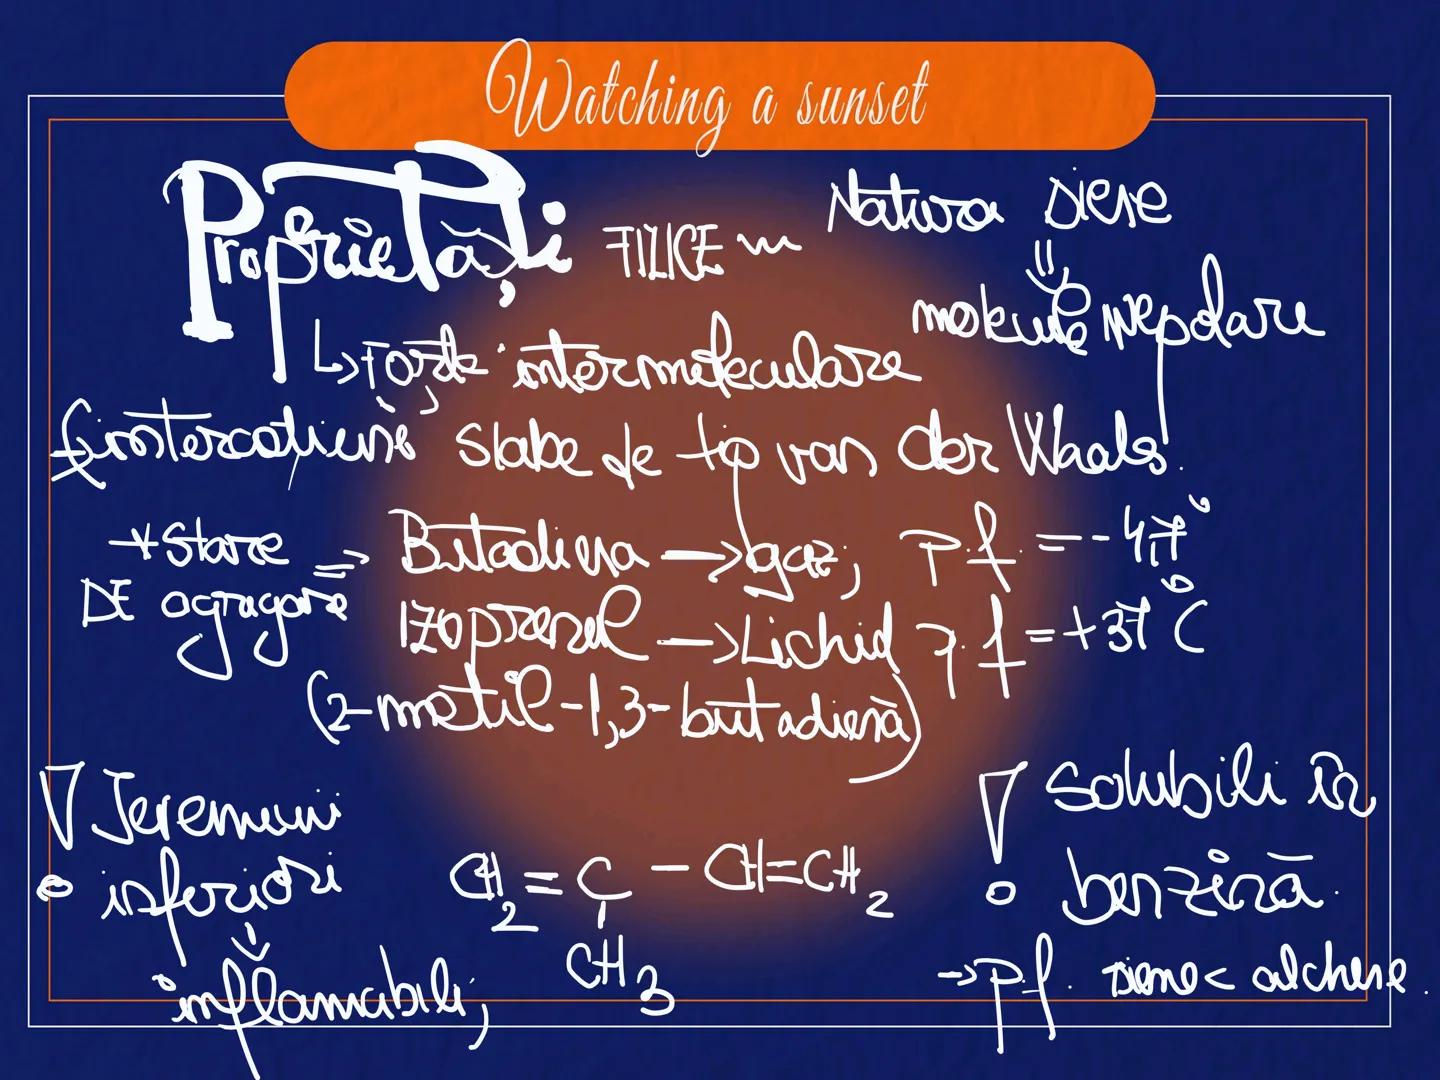 Watching a sunset
Proprietăți FIZICE
Natura diene
⇓
molecule nepolare
↳ Forțe intermoleculare
(interacțiuni slabe de tip van der Waals.
* Stare DE agragare => Butadiena → gaz; p.f. = -4,7°
Izoprenul → Lichid p.f = +37°C
(2-metil-1,3-butadienă)
! Teremenii
inferiori
⇓
inflamabili;
CH2 = C - CH=CH2
CH3
! Solubili în
benzină.
→ p.f. diene < alchene.